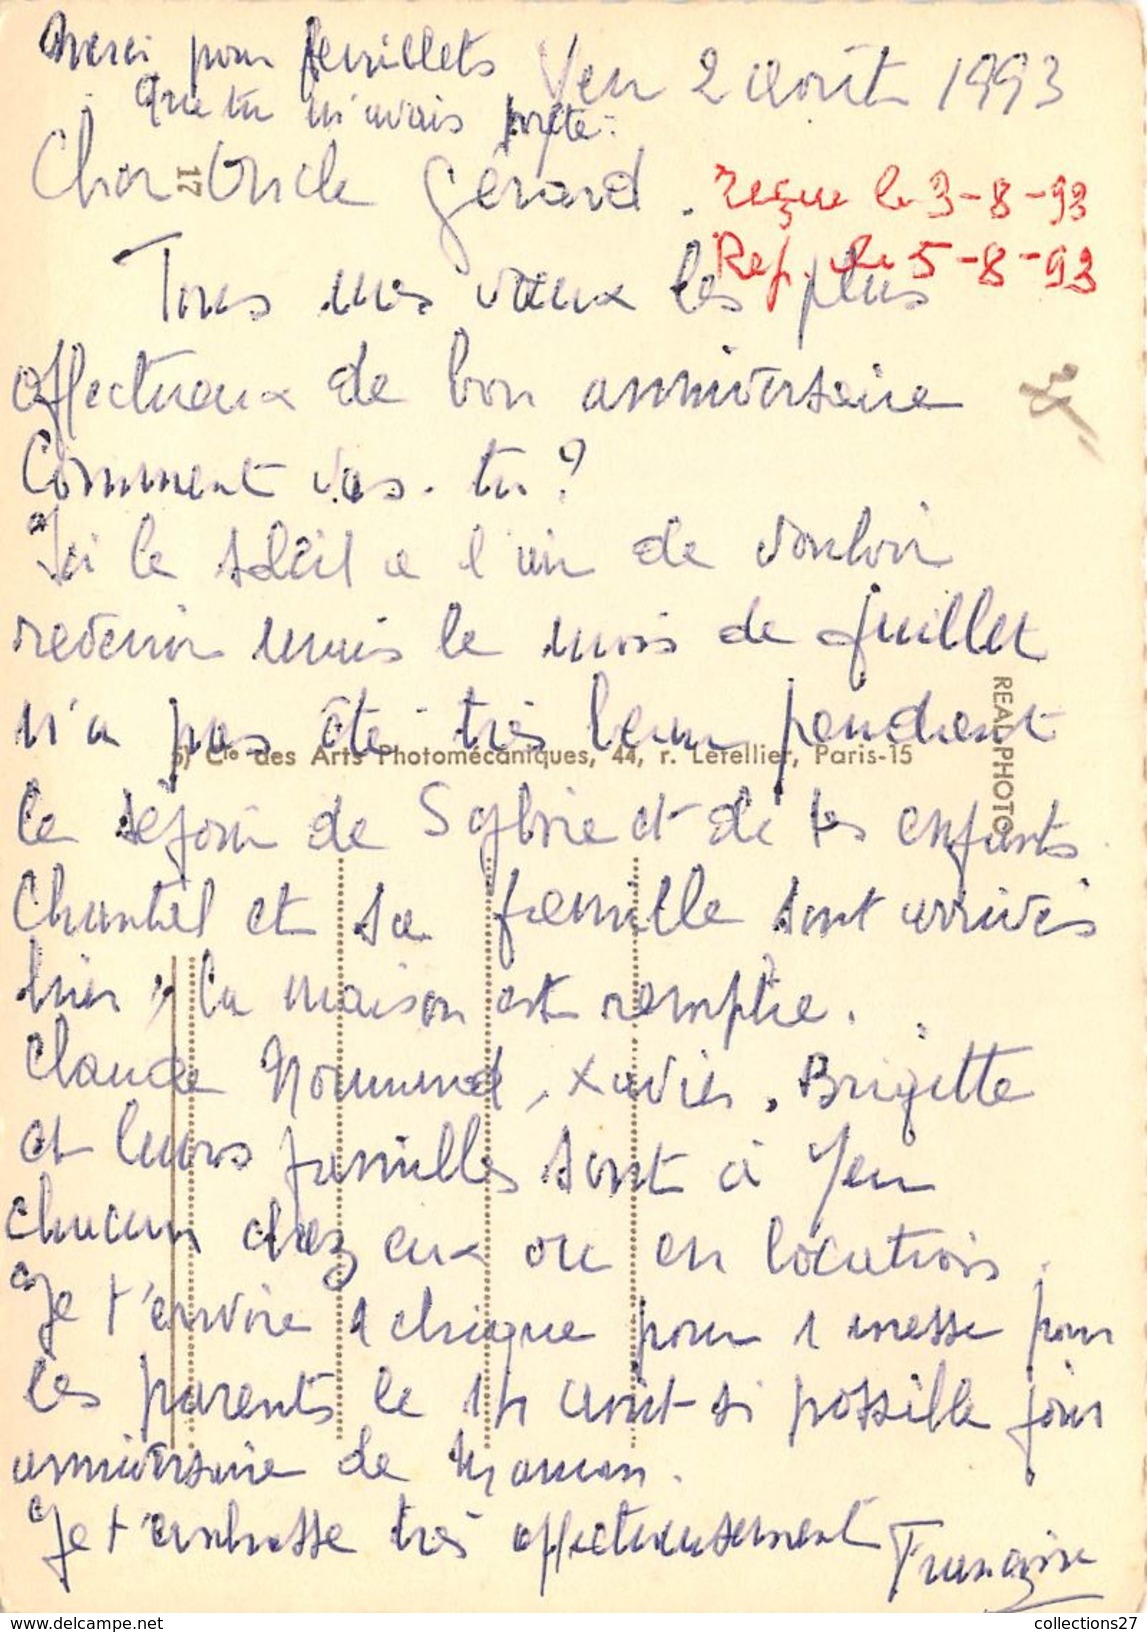 Merci pour feuillets
que tu m'avais prêté.
Yeu 2 août 1993
Cher Oncle Gérard.
17
reçue le 3-8-93
Rep. le 5-8-93
Tous mes vœux les plus
affectueux de bon anniversaire
Comment vas-tu ?
Ici le soleil a l'air de vouloir
revenir mais le mois de juillet
n'a pas été très beau pendant
Cie des Arts Photomécaniques, 44, r. Letellier, Paris-15
REAL PHOTO
le séjour de Sylvie et de ses enfants
Chantal et sa famille sont arrivés
hier, la maison est remplie.
Claude Normand, Xavier, Brigitte
et leurs familles sont à Yeu
chacun chez eux ou en location.
Je t'envoie 1 chèque pour 1 messe pour
les parents le 14 août si possible jour
anniversaire de Maman.
Je t'embrasse très affectueusement
Françoise
collections27